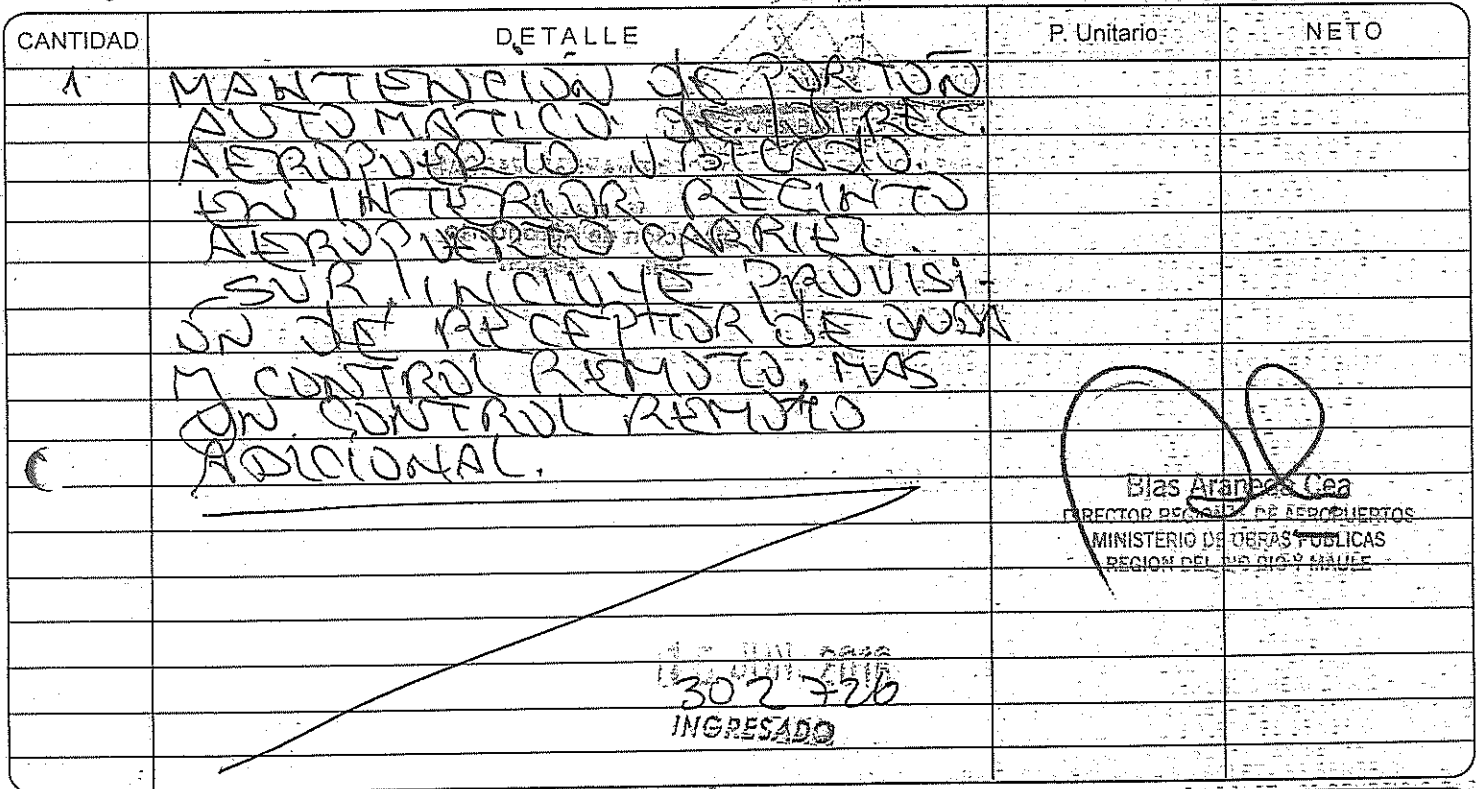 CANTIDAD DETALLE P. Unitario NETO
1 MANTENCIÓN DE PORTON
AUTOMATICO DE DIREC.
AEROPUERTO UBICADO.
EN INTERIOR RECINTO
AEROPUERTO CARRIEL
SUR INCLUYE PROVISI-
ÓN DE RECEPTOR DE ONDA
M CONTROL REMOTO, MAS
UN CONTROL REMOTO
ADICIONAL.
Blas Araneda Cea
DIRECTOR REGIONAL DE AEROPUERTOS
MINISTERIO DE OBRAS PUBLICAS
REGION DEL BIO BIO Y MAULE
JUN. 2016
302726
INGRESADO